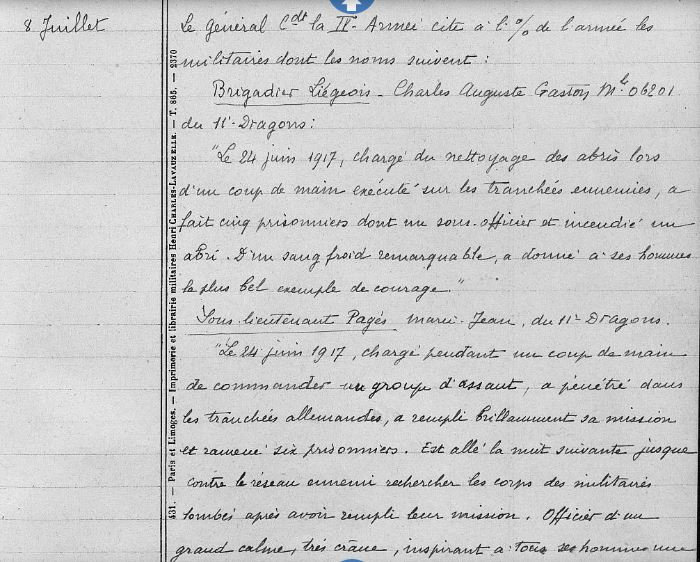 8 Juillet
Le Général Cdt la IVe Armée cite à l'% de l'armée les
militaires dont les noms suivent :
Brigadier Liégeois - Charles Auguste Gaston Mle 06201
du 11e Dragons :
"Le 24 juin 1917, chargé du nettoyage des abris lors
d'un coup de main exécuté sur les tranchées ennemies, a
fait cinq prisonniers dont un sous-officier et incendié un
abri. D'un sang froid remarquable, a donné à ses hommes
le plus bel exemple de courage."
Sous-lieutenant Pagés Marie-Jean, du 11e Dragons.
"Le 24 juin 1917, chargé pendant un coup de main
de commander un groupe d'assaut, a pénétré dans
les tranchées allemandes, a rempli brillamment sa mission
et ramené six prisonniers. Est allé la nuit suivante jusque
contre le réseau ennemi rechercher les corps des militaires
tombés après avoir rempli leur mission. Officier d'un
grand calme, très crâne, inspirant à tous ses hommes une
431. — Paris et Limoges. — Imprimerie et librairie militaires Henri CHARLES-LAVAUZELLE. — T. 865. — 2370